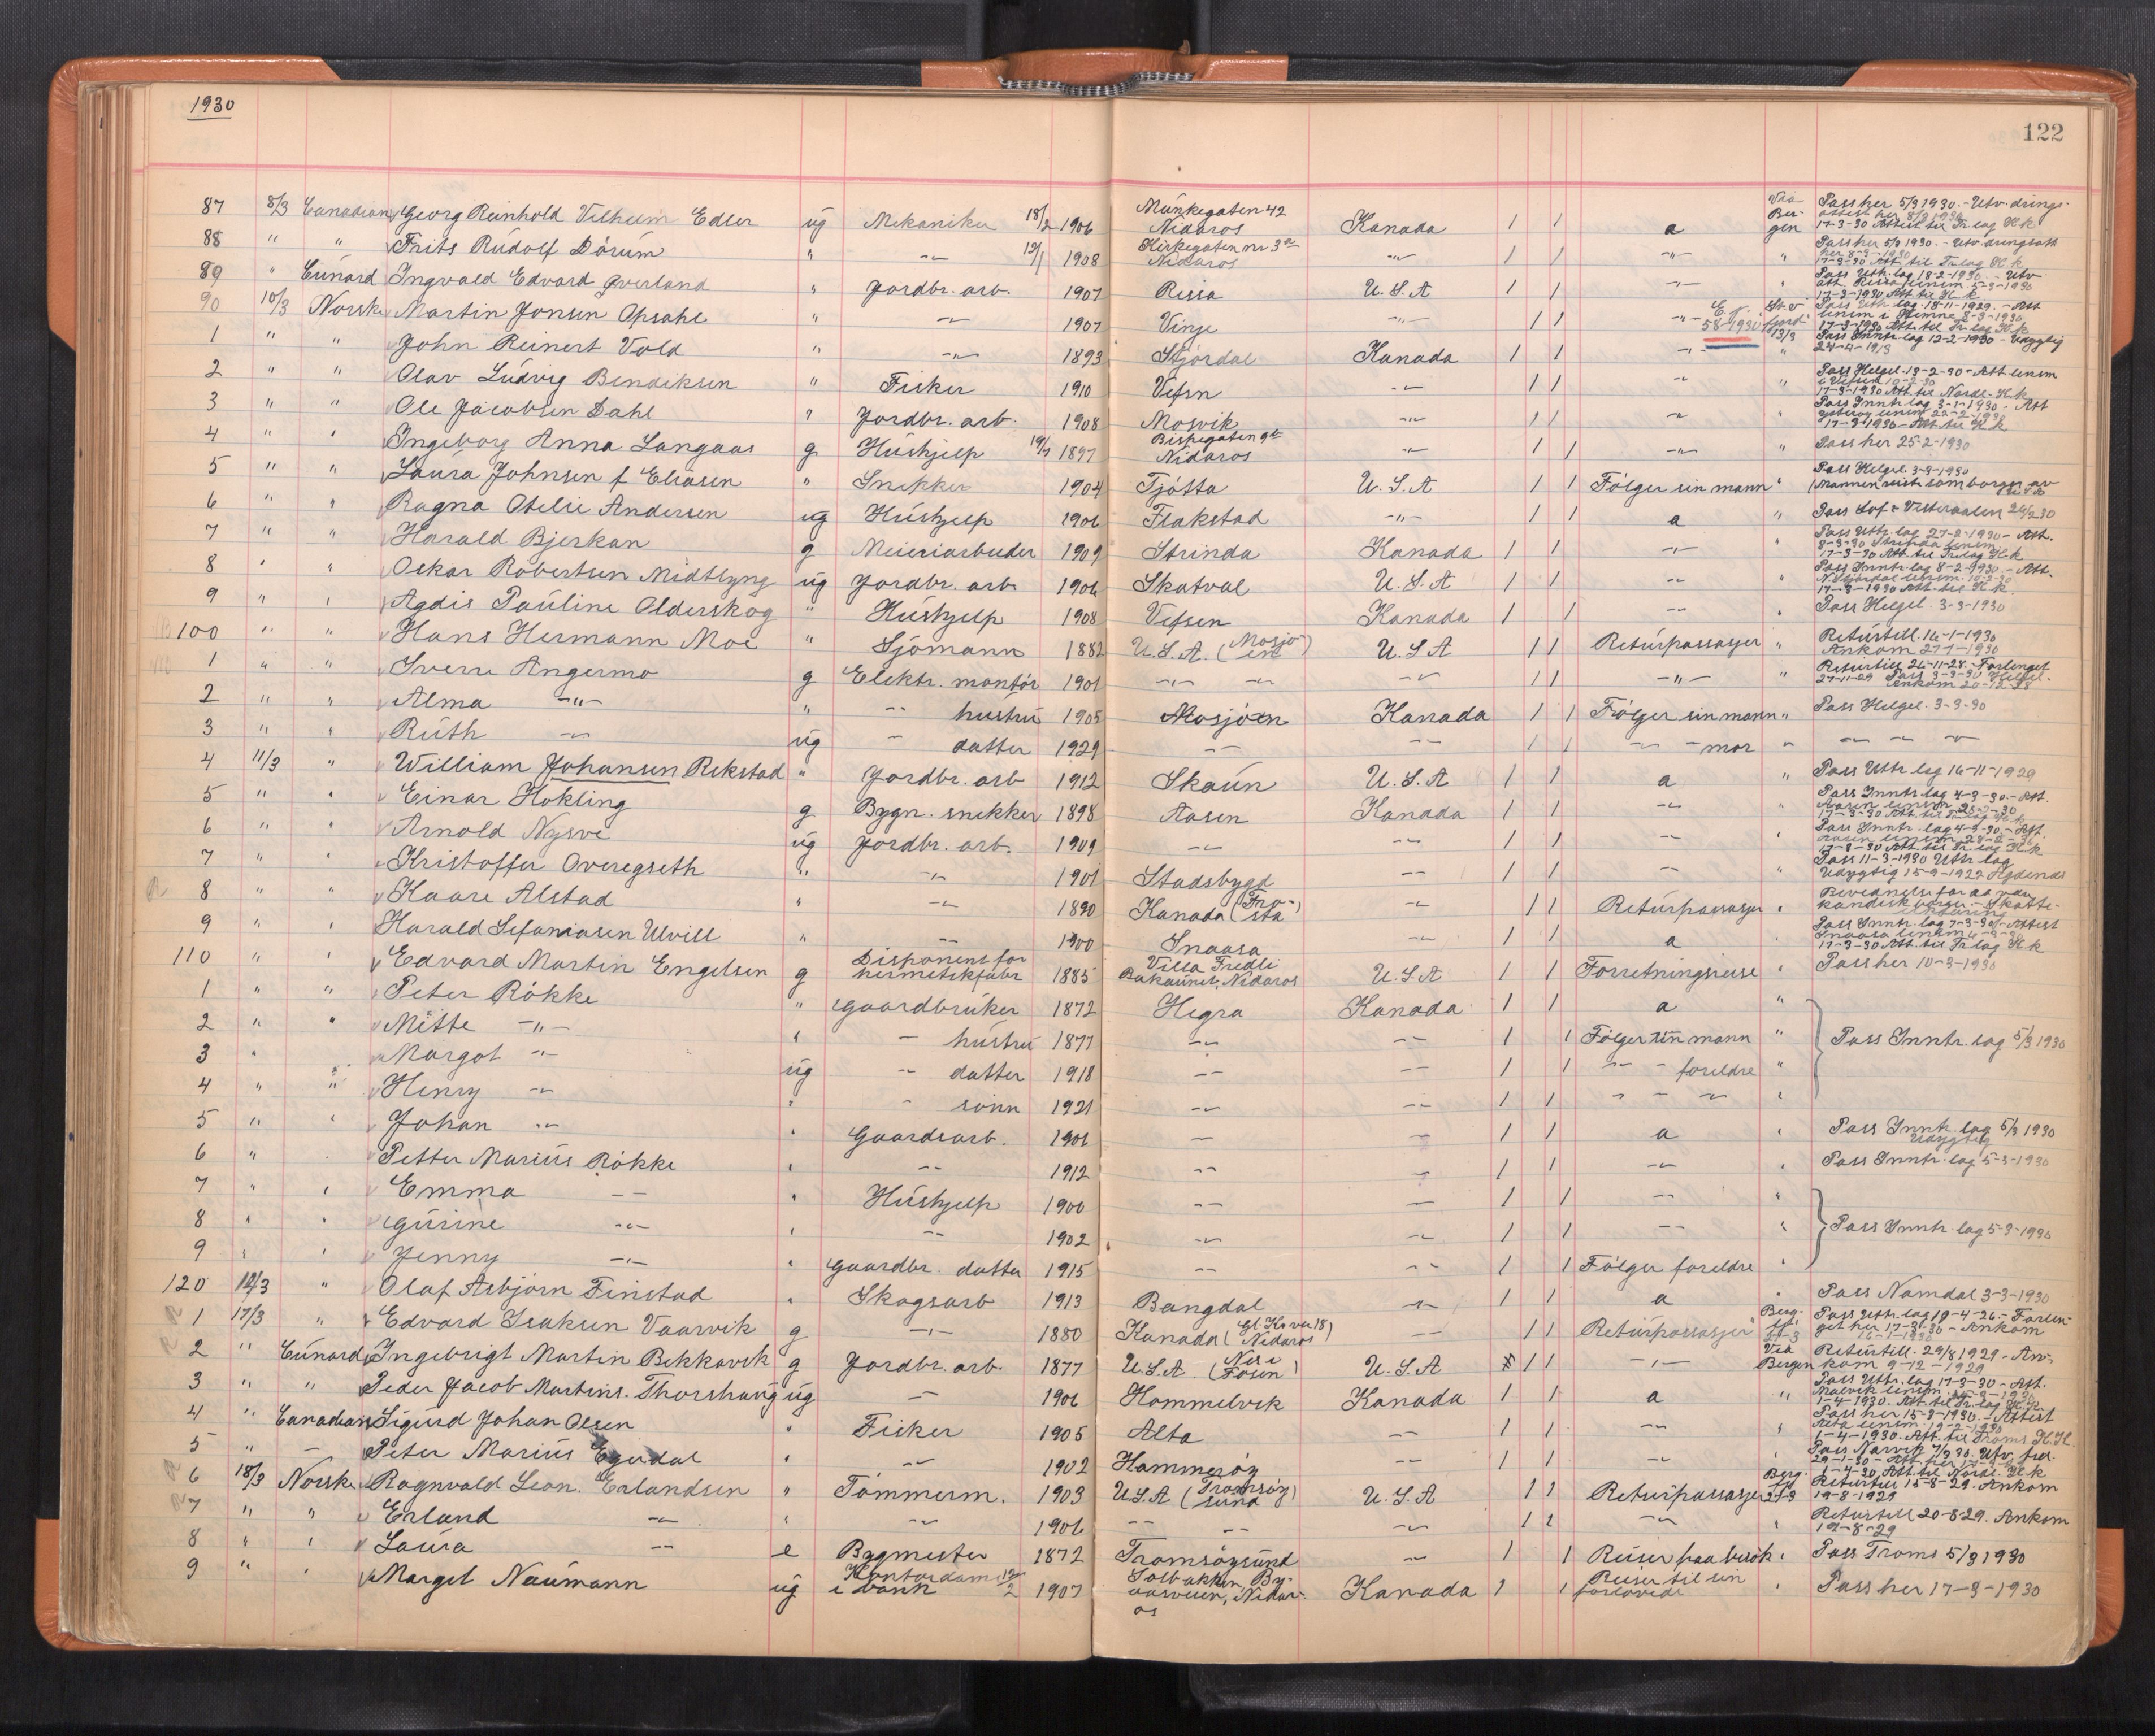 1930
122
87 8/3 Canadian Georg Reinhold Vilhelm Edler ug Mekaniker 18/2 1906 Munkegaten 42 Nidaros Kanada 1 1 a Via Bergen Pass her 5/3 1930. - Utvandringsattest her 8/3 1930 17-3-30 Attest til Tr.lag H.k
88 " " Frits Rudolf Dörum " -"- 12/1 1908 Kirkegaten nr 3 Nidaros -"- 1 1 -"- " Pass her 5/3 1930. - Utvandringsatt her 8-3-1930 17-3-30 Att. til Tr.lag H.k
89 " Cunard Ingvald Edvard Överland " Jordbr. arb. 1907 Rissa U.S.A 1 1 -"- " Pass Uttr.lag 18-2-1930. - Utv att. Rissa lensm. 5-3-1930 17-3-1930 Att. til H.k
90 10/3 Norske Martin Jonsen Opsahl " -"- 1907 Vinje -"- 1 1 -"- E.j. 58-1930 Pass Uttr.lag 18-11-1929. - Att lensm i Hemne 8-3-1930 17-3-1930 Att. til Tr.lag H.k
1 " " John Reinert Vold " -"- 1893 Stjördal Kanada 1 1 -"- 13/3 Pass Inntr.lag 12-2-1930 - Udygtig 24-4-1913
2 " " Olav Ludvig Bendiksen " Fisker 1910 Vefsn -"- 1 1 -"- " Pass Helgel. 13-2-30 - Att lensm i Vefsn 10-2-30 17-3-1930 Att. til Nordl. H.k
3 " " Ole Jacobsen Dahl " Jordbr. arb. 1908 Mosvik -"- 1 1 -"- " Pass Inntr.lag 3-1-1930 - Att Ytteröy lensm 22-2-1930 17-3-1930 - Att. til H.k
4 " " Ingeborg Anna Langaas g Hushjelp 19/7 1897 Bispegaten 9 Nidaros -"- 1 1 -"- " Pass her 25-2-1930
5 " " Laura Johnsen f Eliasen " Snekker 1904 Tjötta U.S.A 1 1 Fölger sin mann " Pass Helgel. 3-3-1930 (Mannen reist som borger av U.S.A)
6 " " Ragna Otelie Andersen ug Hushjelp 1906 Flakstad -"- 1 1 a " Pass Lof. & Vesteraalen 24/2 30
7 " " Harald Bjerkan g Meieriarbeider 1909 Strinda Kanada 1 1 -"- " Pass Uttr.lag 27-2-1930 - Att. 8-3-30 Strinda lensm. 17-3-30 Att. til Tr.lag H.k
8 " " Oskar Robertsen Midtlyng ug Jordbr. arb. 1906 Skatval U.S.A 1 1 -"- " Pass Inntr.lag 8-2-1930. - Att. N. Stjördal lensm. 17-3-1930 Att. til H.k.
9 " " Agdis Pauline Olderskog " Hushjelp 1908 Vefsen Kanada 1 1 -"- " Pass Helgel. 3-3-1930
100 " " Hans Hermann Moe " Sjömann 1882 U.S.A. (Mosjöen) U.S.A 1 1 Returpassasjer " Returtill. 16-1-1930 Ankom 27-1-1930
1 " " Sverre Angermo g Elektr. montör 1901 -"- -"- -"- 1 1 -"- " Returtill 26-11-28. - Forlenget 27-11-29 Pass 3-3-30 Helgel. Ankom 20-12-28
2 " " Alma -"- " -"- hustru 1905 Mosjöen Kanada 1 1 Fölger sin mann " Pass Helgel. 3-3-30
3 " " Ruth -"- ug -"- datter 1929 -"- -"- 1 1 -"- -"- mor " -"- -"- -"-
4 11/3 " William Johansen Rekstad " Jordbr. arb 1912 Skaun U.S.A 1 1 a " Pass Uttr.lag 16-11-1929
5 " " Einar Hokling g Bygn. snekker 1898 Aasen Kanada 1 1 -"- " Pass Inntr.lag 4-3-30. - Att. Aasen lensm 17-3-30 Att. til Tr.lag H.k
6 " " Arnold Nysve ug Jordbr. arb. 1909 -"- -"- 1 1 -"- " Pass Inntr. lag 4-3-30, - Att. Aasen lensm 17-3-30 Att. til Tr.lag H.k
7 " " Kristoffer Overegseth " -"- 1901 Stadsbygd -"- 1 1 -"- " Pass 11-3-1930 Uttr.lag Udygtig 15-9-1922 Agdenes
8 " " Kaare Alstad " -"- 1890 Kanada (Frosta) -"- 1 1 Returpassasjer " kanadisk borger. - Skatte-
9 " " Harald Sefaniasen Ulvill " -"- 1900 Snaasa -"- 1 1 a " Pass Inntr. lag 7-3-30. - Attest Snaasa lensm 17-3-30 Att. til Tr.lag H.k
110 " " Edvard Martin Engelsen g Disponent for hermetikfabr 1885 Villa Fredli Bakaunet, Nidaros U.S.A 1 1 Forretningsreise " Pass her 10-3-1930
1 " " Peter Rökke " Gaardbruker 1872 Hegra Kanada 1 1 a "
2 " " Mette -"- " -"- hustru 1877 -"- -"- 1 1 Fölger sin mann " Pass Inntr. lag 5/3 1930
3 " Margot -"- ug -"- datter 1918 -"- -"- 1 1 -"- -"- foreldre "
4 " " Henry -"- " -"- sönn 1921 -"- -"- 1 1 -"- -"- -"- "
5 " " Johan -"- " Gaardsarb. 1906 -"- -"- 1 1 a " Pass Inntr. lag 5/3 1930 Udygtig
6 " " Petter Marius Rökke " -"- 1912 -"- -"- 1 1 -"- " Pass Inntr. lag 5-3-1930
7 " " Emma -"- " Hushjelp 1900 -"- -"- 1 1 -"- "
8 " " Gurine -"- " -"- 1902 -"- -"- 1 1 -"- " Pass Inntr. lag 5-3-1930
9 " " Jenny -"- " Gaardbr. datter 1915 -"- -"- 1 1 Fölger foreldre "
120 12/3 " Olaf Asbjörn Finstad " Skogsarb 1913 Bangdal -"- 1 1 a " Pass Namdal 3-3-1930
1 17/3 " Edvard Isaksen Vaarvik g -"- 1880 Kanada (Nidaros) -"- 1 1 Returpassasjer Pass Uttr.lag 19-4-26. - Forlenget her 17-3-30 - Ankom
2 " Cunard Ingebrigt Martin Bekkavik g Jordbr. arb. 1877 U.S.A. (Nes i Fosen) U.S.A 1 1 -"- Via Bergen Returtill. 29/8 1929 - Ankom 9-12-1929
3 " " Peder Jacob Martins. Thorshaug ug -"- 1906 Hommelvik Kanada 1 1 a " Pass Uttr. lag 17-3-30 - Att. Malvik lensm. 1-4-1930. Att. til Tr.lag H.k.
4 " Canadian Sigurd Johan Olsen " Fisker 1905 Alta -"- 1 1 -"- " Pass her 15-3-1930. - Attest Alta lensm. 1-4-1930. Att. til Troms H.k.
5 " -"- Peter Marius Egedal " -"- 1902 Hammeröy -"- 1 1 -"- " Pass Narvik 7/2 30. Utv. 1-4-30 Att. til Nordl. H.k
6 18/3 Norske Ragnvald Leon. Erlandsen " Tömmerm. 1903 U.S.A (Tromsöysund) U.S.A 1 1 Returpassasjer 21-3 Returtill 15-8-29. Ankom 19-8-1929
7 " " Erland -"- " -"- 1906 -"- -"- -"- 1 1 -"- " Returtill 20-8-29. Ankom 19-8-29
8 " " Laura -"- e Bygmester 1872 Tromsöysund -"- 1 1 Reiser paa besök " Pass Troms 5/3 1930
9 " " Margit Naumann ug Kontordame i bank 12/2 1907 Solbakken, Byaasveien, Nidaros Kanada 1 1 Reiser til sin forlovede " Pass her 17-3-1930